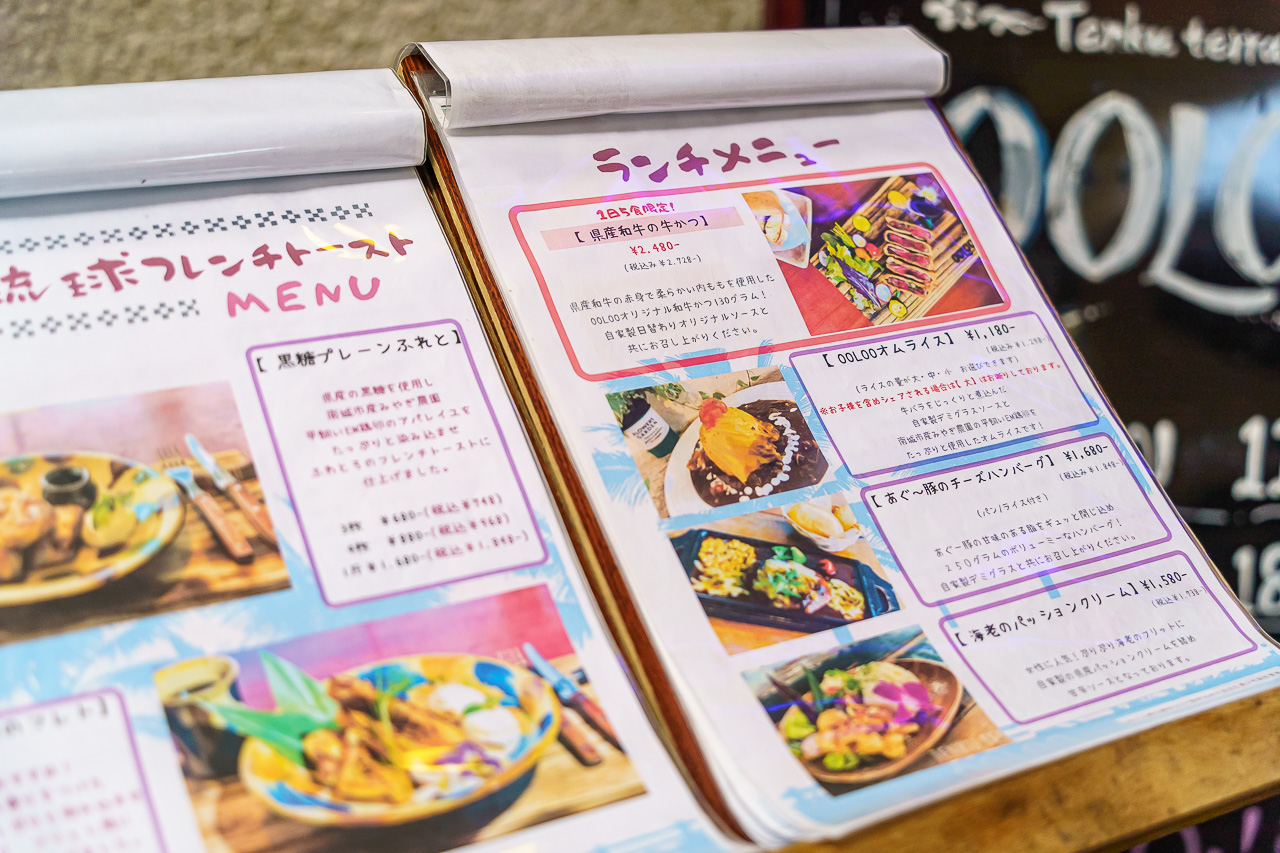 琉球フレンチトースト
MENU
【黒糖プレーンふれと】
県産の黒糖を使用し
南城市産みやぎ農園
平飼いEM鶏卵のアパレイユを
たっぷりと染み込ませ
ふわとろのフレンチトーストに
仕上げました。
¥680-(税込¥748)
¥880-(税込¥968)
¥1,680-(税込¥1,848-)
ランチメニュー
1日5食限定!
【県産和牛の牛かつ】
¥2,480-
(税込み¥2,728-)
県産和牛の赤身で柔らかい内ももを使用した
OOLOOオリジナル和牛かつ130グラム!
自家製日替わりオリジナルソースと
共にお召し上がりください。
【OOLOOオムライス】¥1,180-
(税込み¥1,298-)
(ライスの量が大・中・小 お選びできます)
※お子様を含めシェアされる場合は【大】はお断りしております。
牛バラをじっくりと煮込んだ
自家製デミグラスソースと
南城市産みやぎ農園の平飼いEM鶏卵を
たっぷりと使用したオムライスです!
【あぐ~豚のチーズハンバーグ】¥1,680-
(税込み¥1,848-)
(パン/ライス付き)
あぐー豚の甘味のある脂をギュッと閉じ込め
250グラムのボリューミーなハンバーグ!
自家製デミグラスと共にお召し上がりください。
【海老のパッションクリーム】¥1,580-
(税込¥1,738-)
女性に人気!ぷりぷり海老のフリットに
自家製の県産パッションクリームを絡め
甘辛ソースとなっております。
Tenku terra
OOLO